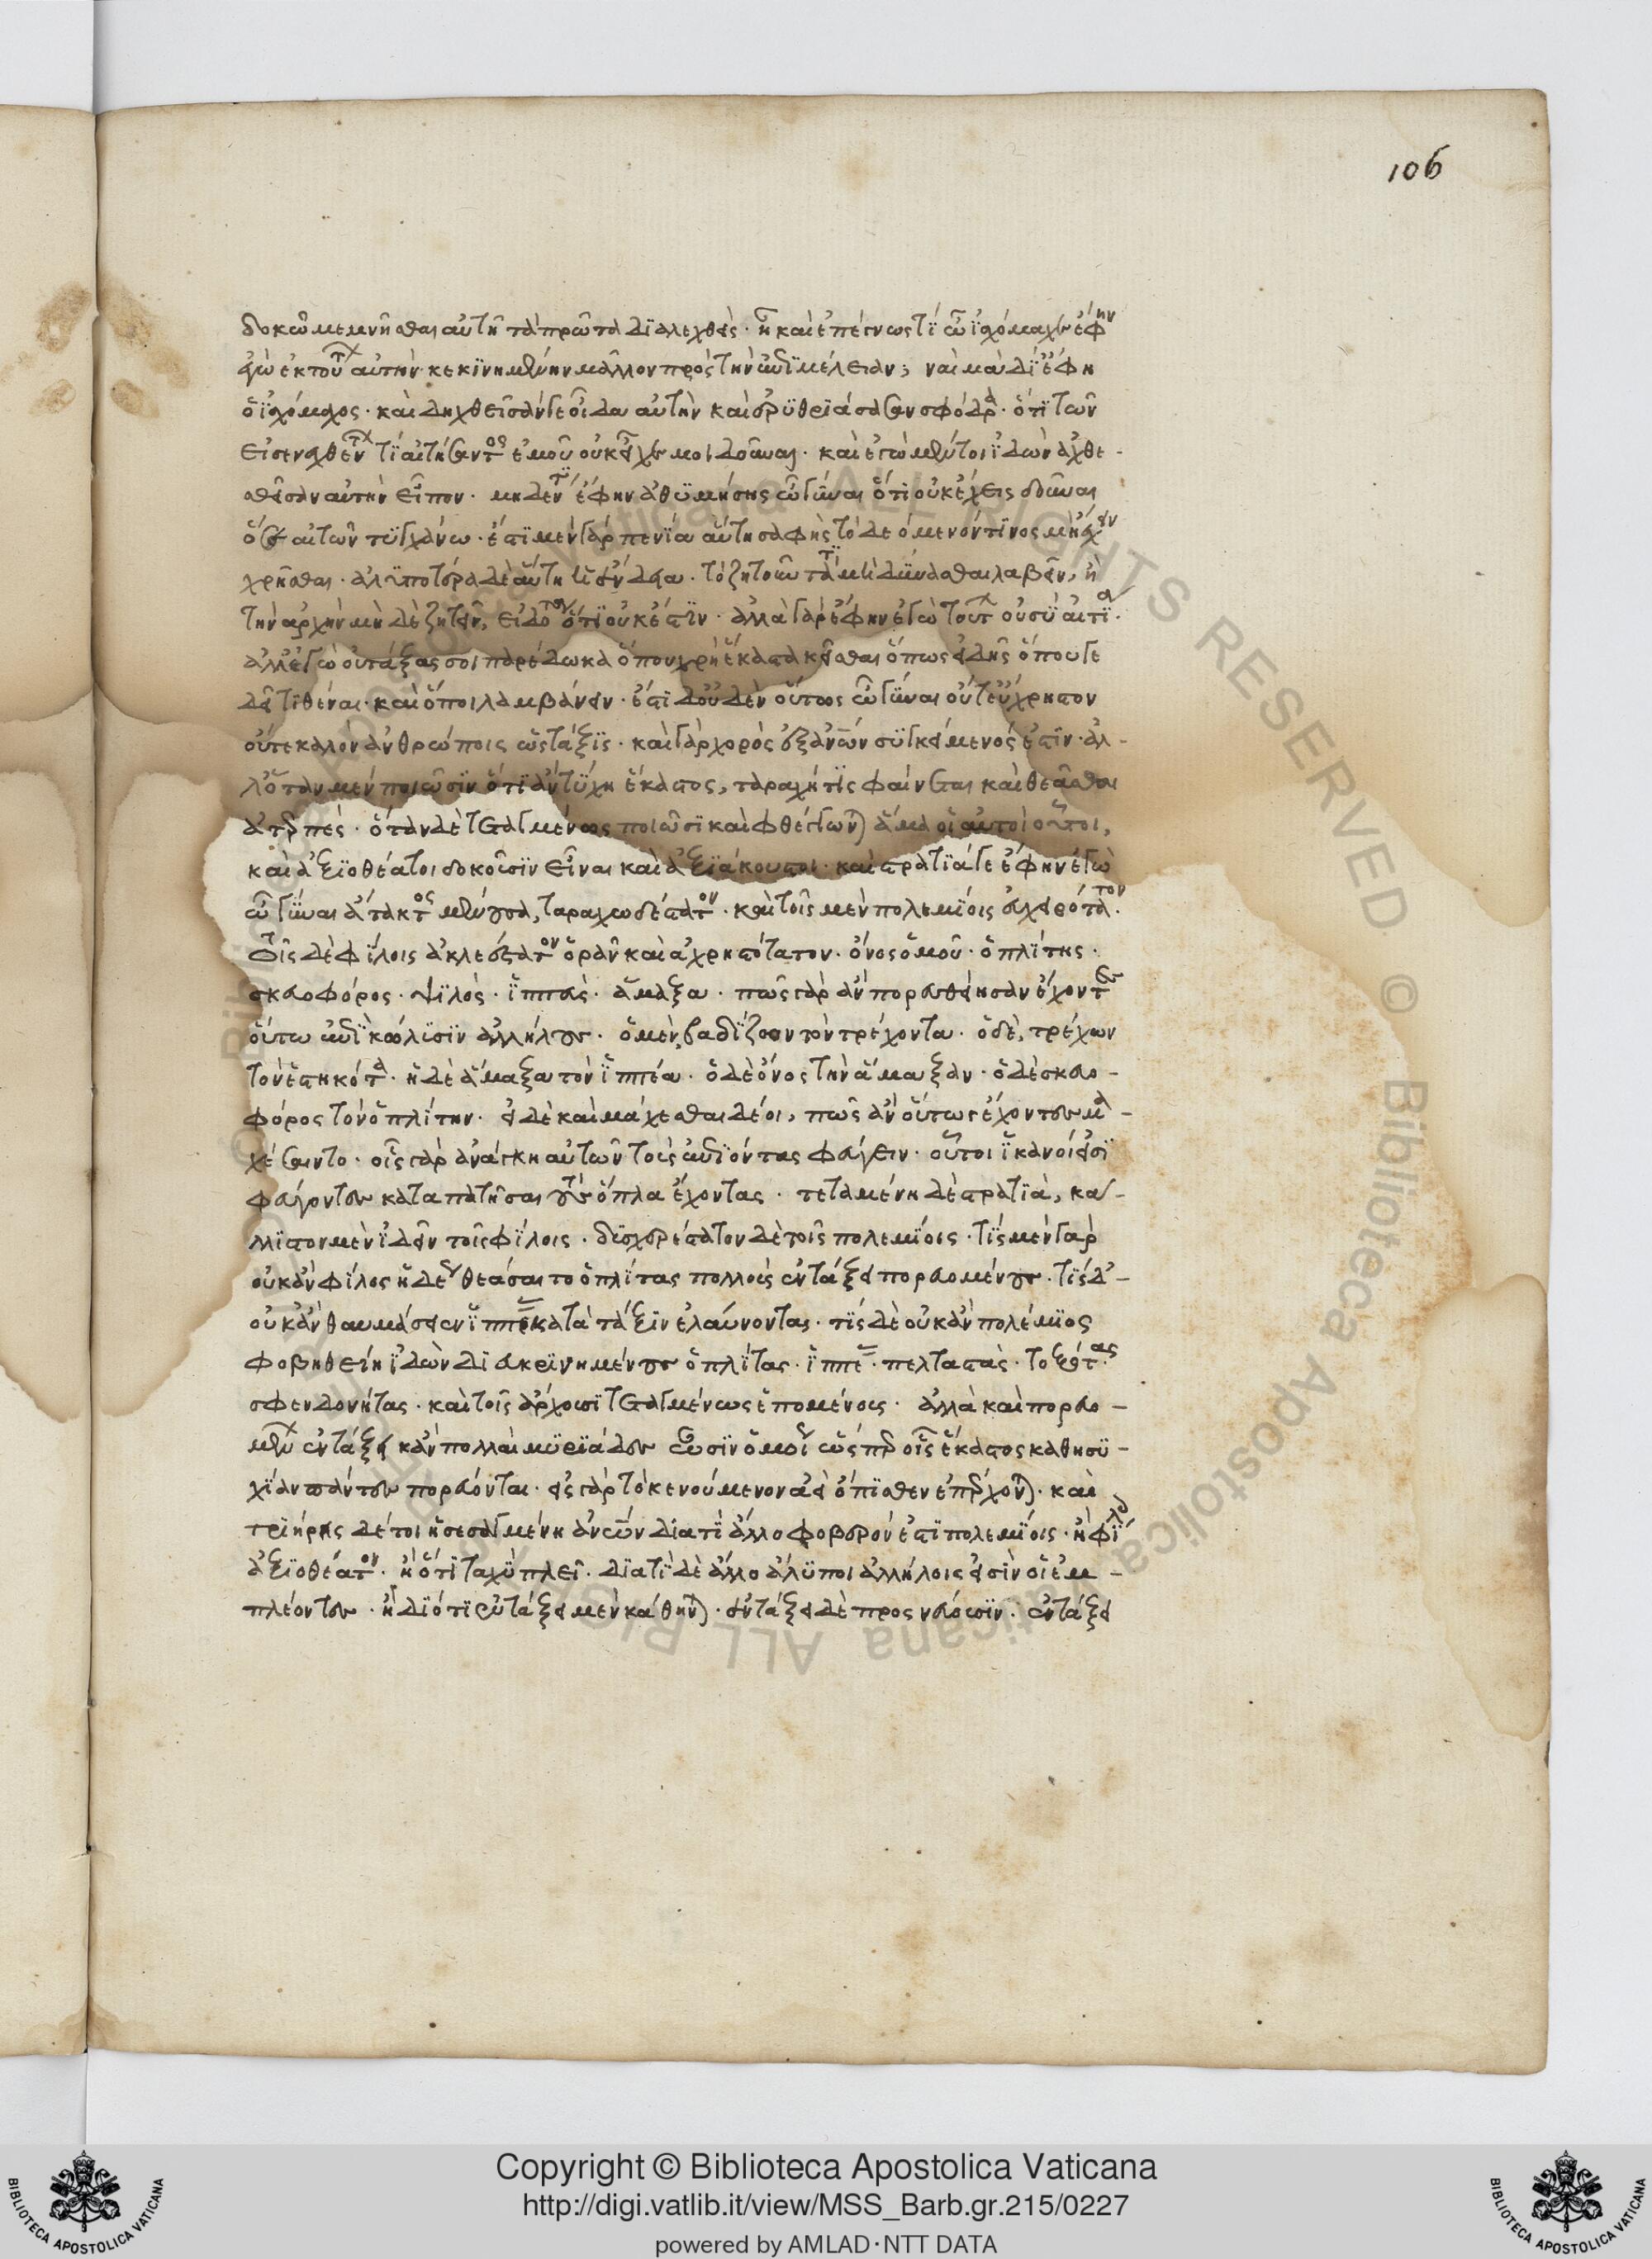 106
δοκῶ μεμνῆσθαι αὐτῆ τὰ πρῶτα διαλεχθείς · ἦ καὶ ἐπέγνως τί ὦ ἰσχόμαχε ἔφην
ἐγὼ ἐκ τούτων αὐτὴν κεκινημένην μᾶλλον πρὸς τὴν ἐπιμέλειαν ; ναὶ μὰ δί ἔφη
ὁ ἰσχόμαχος · καὶ δηχθεῖσάν γε οἶδα αὐτὴν καὶ ἐρυθριάσασαν σφόδρα · ὅτι τῶν
εἰσενεχθέντων τί αἰτήσαντος ἐμοῦ οὐκ εἶχε μοι δοῦναι · καὶ ἐγὼ μέντοι ἰδὼν ἀχθε-
σθεῖσαν αὐτὴν εἶπον · μηδέν τι ἔφην ἀθυμήσης ὦ γύναι ὅτι οὐκ ἔχεις δοῦναι
ὅ σε αἰτῶν τυγχάνω · ἔστι μὲν γὰρ πενία αὕτη σαφὴς τὸ δεόμενόν τινος μὴ ἔχειν
χρῆσθαι · ἀλυποτέρα δὲ αὕτη ἡ ἔνδεια · τὸ ζητοῦντά τι μὴ δύνασθαι λαβεῖν, ἢ
τὴν ἀρχὴν μὴ δὲ ζητεῖν, εἰδότα ὅτι οὐκ ἔστιν · ἀλλὰ γὰρ ἔφην ἐγὼ τούτων οὐ σὺ αἰτία ·
ἀλλ' ἐγὼ οὐ τάξας σοι παρέδωκα ὅπου χρὴ ἕκαστα κεῖσθαι ὅπως εἰδῆς ὅπου τε
δεῖ τιθέναι · καὶ ὅποι λαμβάνειν · ἔστι δ' οὐδὲν οὕτως ὦ γύναι οὔτ' εὔχρηστον
οὔτε καλὸν ἀνθρώποις ὡς τάξις · καὶ γὰρ χορὸς ἐξ ἀνθρώπων συγκείμενός ἐστιν · ἀλ-
λ' ὅταν μὲν ποιῶσιν ὅτι ἂν τύχη ἕκαστος, ταραχή τις φαίνεται καὶ θεᾶσθαι
ἀτερπές · ὅταν δὲ τεταγμένως ποιῶσι καὶ φθέγγωνται ἅμα οἱ αὐτοὶ οὗτοι,
καὶ ἀξιοθέατοι δοκοῦσιν εἶναι καὶ ἀξιάκουστοι · καὶ στρατιά γε ἔφην ἐγὼ
ὦ γύναι ἄτακτος μὲν οὖσα, ταραχωδέστατον · καὶ τοῖς μὲν πολεμίοις εὐχειρότατον ·
τοῖς δὲ φίλοις ἀκλεέστατον ὁρᾶν καὶ ἀχρηστότατον · ὄνος ὁμοῦ · ὁπλίτης ·
σκευοφόρος · ψιλὸς · ἱππεὺς · ἅμαξα · πῶς γὰρ ἂν πορευθείησαν ἔχοντες
οὕτω ἐπικωλύσιν ἀλλήλους · ὁ μὲν βαδίζων τὸν τρέχοντα · ὁ δὲ, τρέχων
τὸν ἑστηκότα · ἡ δὲ ἅμαξα τὸν ἱππέα · ὁ δὲ ὄνος τὴν ἅμαξαν · ὁ δὲ σκευο-
φόρος τὸν ὁπλίτην · εἰ δὲ καὶ μάχεσθαι δέοι, πῶς ἂν οὕτως ἔχοντες μα-
χέσαιντο · οἷς γὰρ ἀνάγκη αὐτῶν τοὺς ἐπιόντας φεύγειν · οὗτοι ἱκανοί εἰσι
φεύγοντες καταπατῆσαι τοὺς ὅπλα ἔχοντας · τεταμένη δὲ στρατιὰ, καλ-
λιστον μὲν ἰδεῖν τοῖς φίλοις · δυσχερέστατον δὲ τοῖς πολεμίοις · τίς μὲν γὰρ
οὐκ ἂν φίλος ἡδέως θεάσαιτο ὁπλίτας πολλοὺς ἐν τάξει πορευομένους · τίς δ' -
οὐκ ἂν θαυμάσειεν ἱππέας κατὰ τάξιν ἐλαύνοντας · τίς δὲ οὐκ ἂν πολέμιος
φοβηθείη ἰδὼν διευκρινημένους ὁπλίτας · ἱππέας · πελταστὰς · τοξότας ·
σφενδονήτας · καὶ τοῖς ἄρχουσι τεταγμένως ἑπομένους · ἀλλὰ καὶ πορευο-
μένων ἐν τάξει κἂν πολλαὶ μυριάδες ὦσιν ὁμοίως ὥσπερ οἷς ἕκαστος καθ' ἡσυ-
χίαν πάντες πορεύονται · εἰς γὰρ τὸ κενούμενον ἀεὶ ὄπισθεν ἐπέρχονται · καὶ
τριήρης δέ τοι ἡ σεσαγμένη ἀνθρώπων διατί ἄλλο φοβερόν ἐστι πολεμίοις · ἢ φίλοις
ἀξιοθέατον · ἢ ὅτι ταχὺ πλεῖ · διατί δὲ ἄλλο ἄλυποι ἀλλήλοις εἰσὶν οἱ ἐμ-
πλέοντες · ἢ διότι ἐν τάξει μὲν κάθηνται · ἐν τάξει δὲ προσνεύουσιν · ἐν τάξει
Copyright © Biblioteca Apostolica Vaticana
http://digi.vatlib.it/view/MSS_Barb.gr.215/0227
powered by AMLAD·NTT DATA